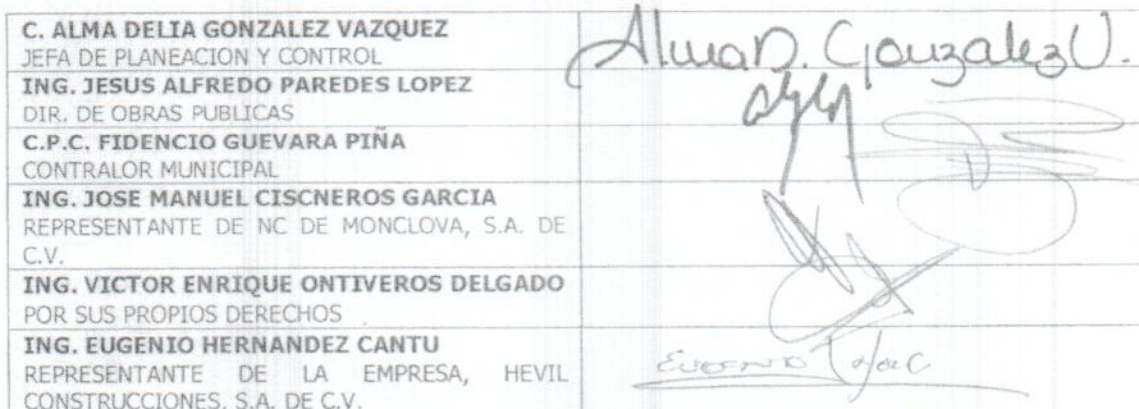 C. ALMA DELIA GONZALEZ VAZQUEZ
JEFA DE PLANEACION Y CONTROL
AlmaD. Gonzalez V.
ING. JESUS ALFREDO PAREDES LOPEZ
DIR. DE OBRAS PUBLICAS
C.P.C. FIDENCIO GUEVARA PIÑA
CONTRALOR MUNICIPAL
ING. JOSE MANUEL CISCNEROS GARCIA
REPRESENTANTE DE NC DE MONCLOVA, S.A. DE
C.V.
ING. VICTOR ENRIQUE ONTIVEROS DELGADO
POR SUS PROPIOS DERECHOS
ING. EUGENIO HERNANDEZ CANTU
REPRESENTANTE DE LA EMPRESA, HEVIL
CONSTRUCCIONES, S.A. DE C.V.
EUGENIO